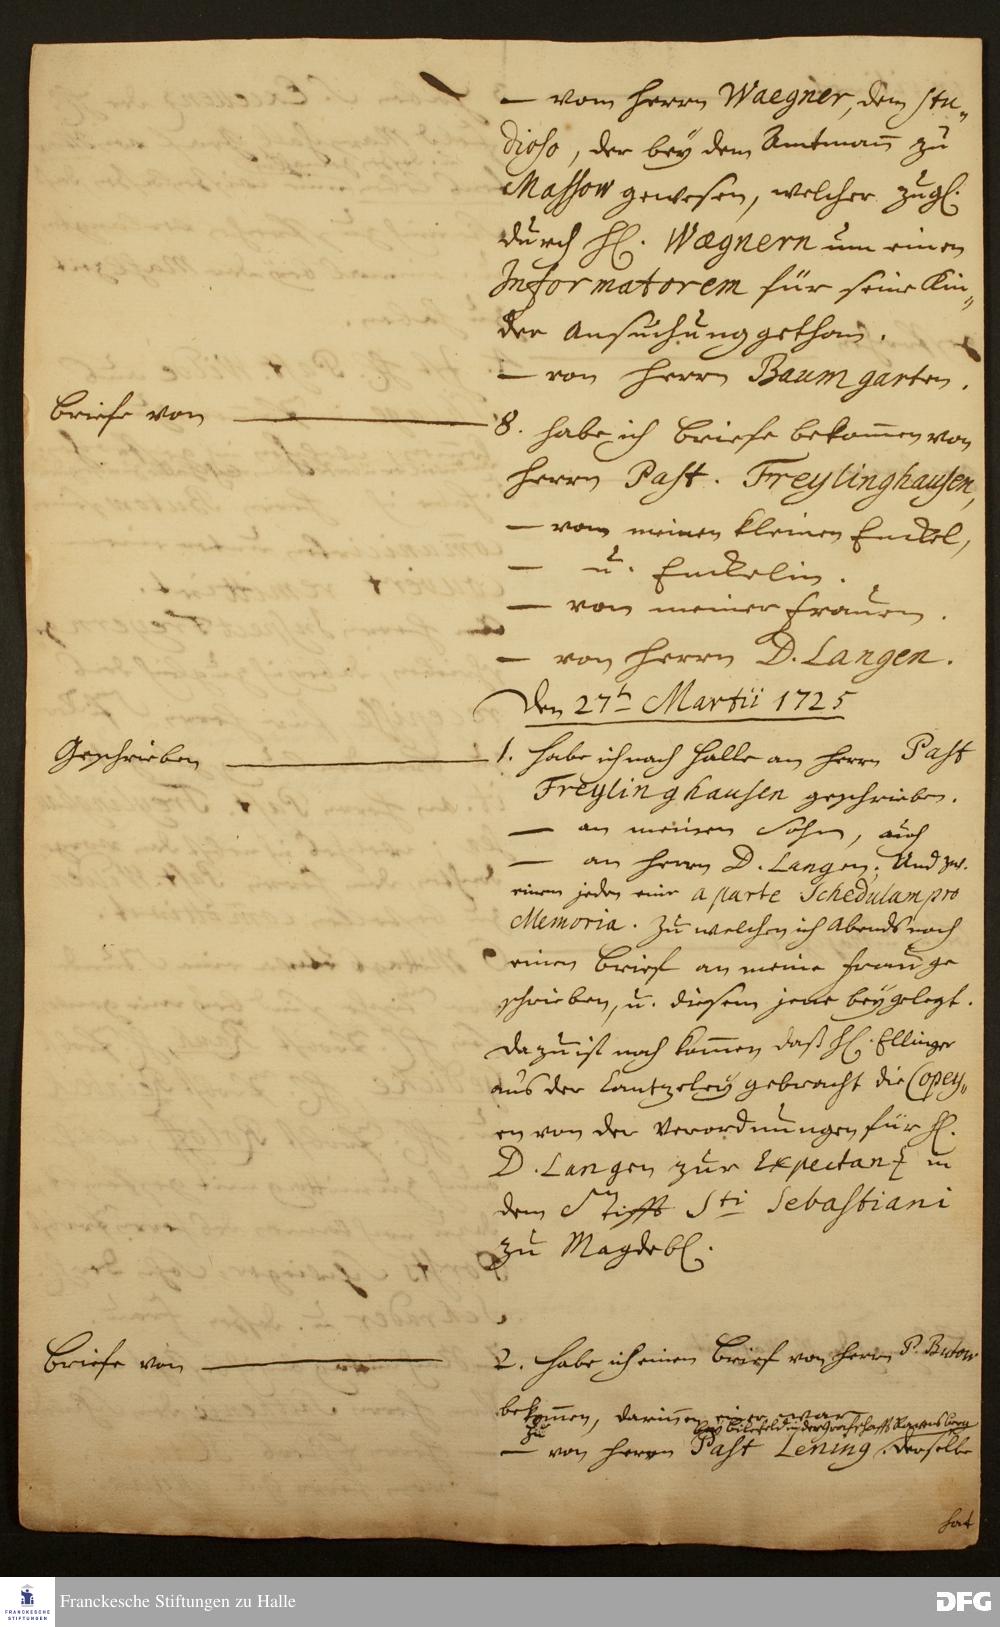 — vom Herrn Waegner, dem Stu„
dioso, der bey dem Amtmañ zu
Massow gewesen, welcher zugl.
durch H. Wægnern um einen
Informatorem für seine Kin„
der Ansuchung gethan.
— von Herrn Baumgarten.
Briefe von — 8. habe ich Briefe bekom̃en von
Herrn Past. Freylinghausen,
— von meinen kleinen Enckel,
— u. Enckelin.
— von meiner Frauen.
— von Herrn D. Langen.
Den 27t. Martii 1725
Geschrieben — 1. habe ich nach Halle an Herrn Past
Freylinghausen geschrieben.
— an meinen Sohn, auch
— an Herrn D. Langen, Und zw.
einem jeden eine aparte Schedulam pro
Memoria. Zu welchen ich Abends noch
einen Brief an meine Frau ge
schrieben, u. diesem jene beygelegt.
Dazu ist noch kom̃en daß H. Ellinger
aus der Cantzeley gebracht die Copey„
en von der Verordnungen für H.
D. Langen zur Expectantz in
dem Stifft Sti Sebastiani
zu Magdeb.
Briefe von — 2. habe ich einen Brief von Herrn P. Butow
bekom̃en, darin̄en einer war
zu bey Bilefeld in der Grafschafft Ravensberg
— von Herrn Past Lening derselbe
hat
Franckesche Stiftungen zu Halle
FRANCKESCHE
STIFTUNGEN
DFG